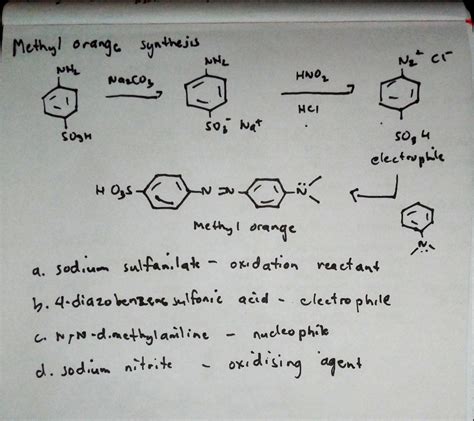 Methyl orange synthesis
NH2 Na2CO3 NH2 HNO2 N2+ Cl-
HCl
SO3H SO3- Na+ SO3H
electrophile
HO3S N=N N̈
N̈
Methyl orange
a. sodium sulfanilate - oxidation reactant
b. 4-diazobenzenesulfonic acid - electrophile
c. N,N-dimethylaniline - nucleophile
d. sodium nitrite - oxidising agent